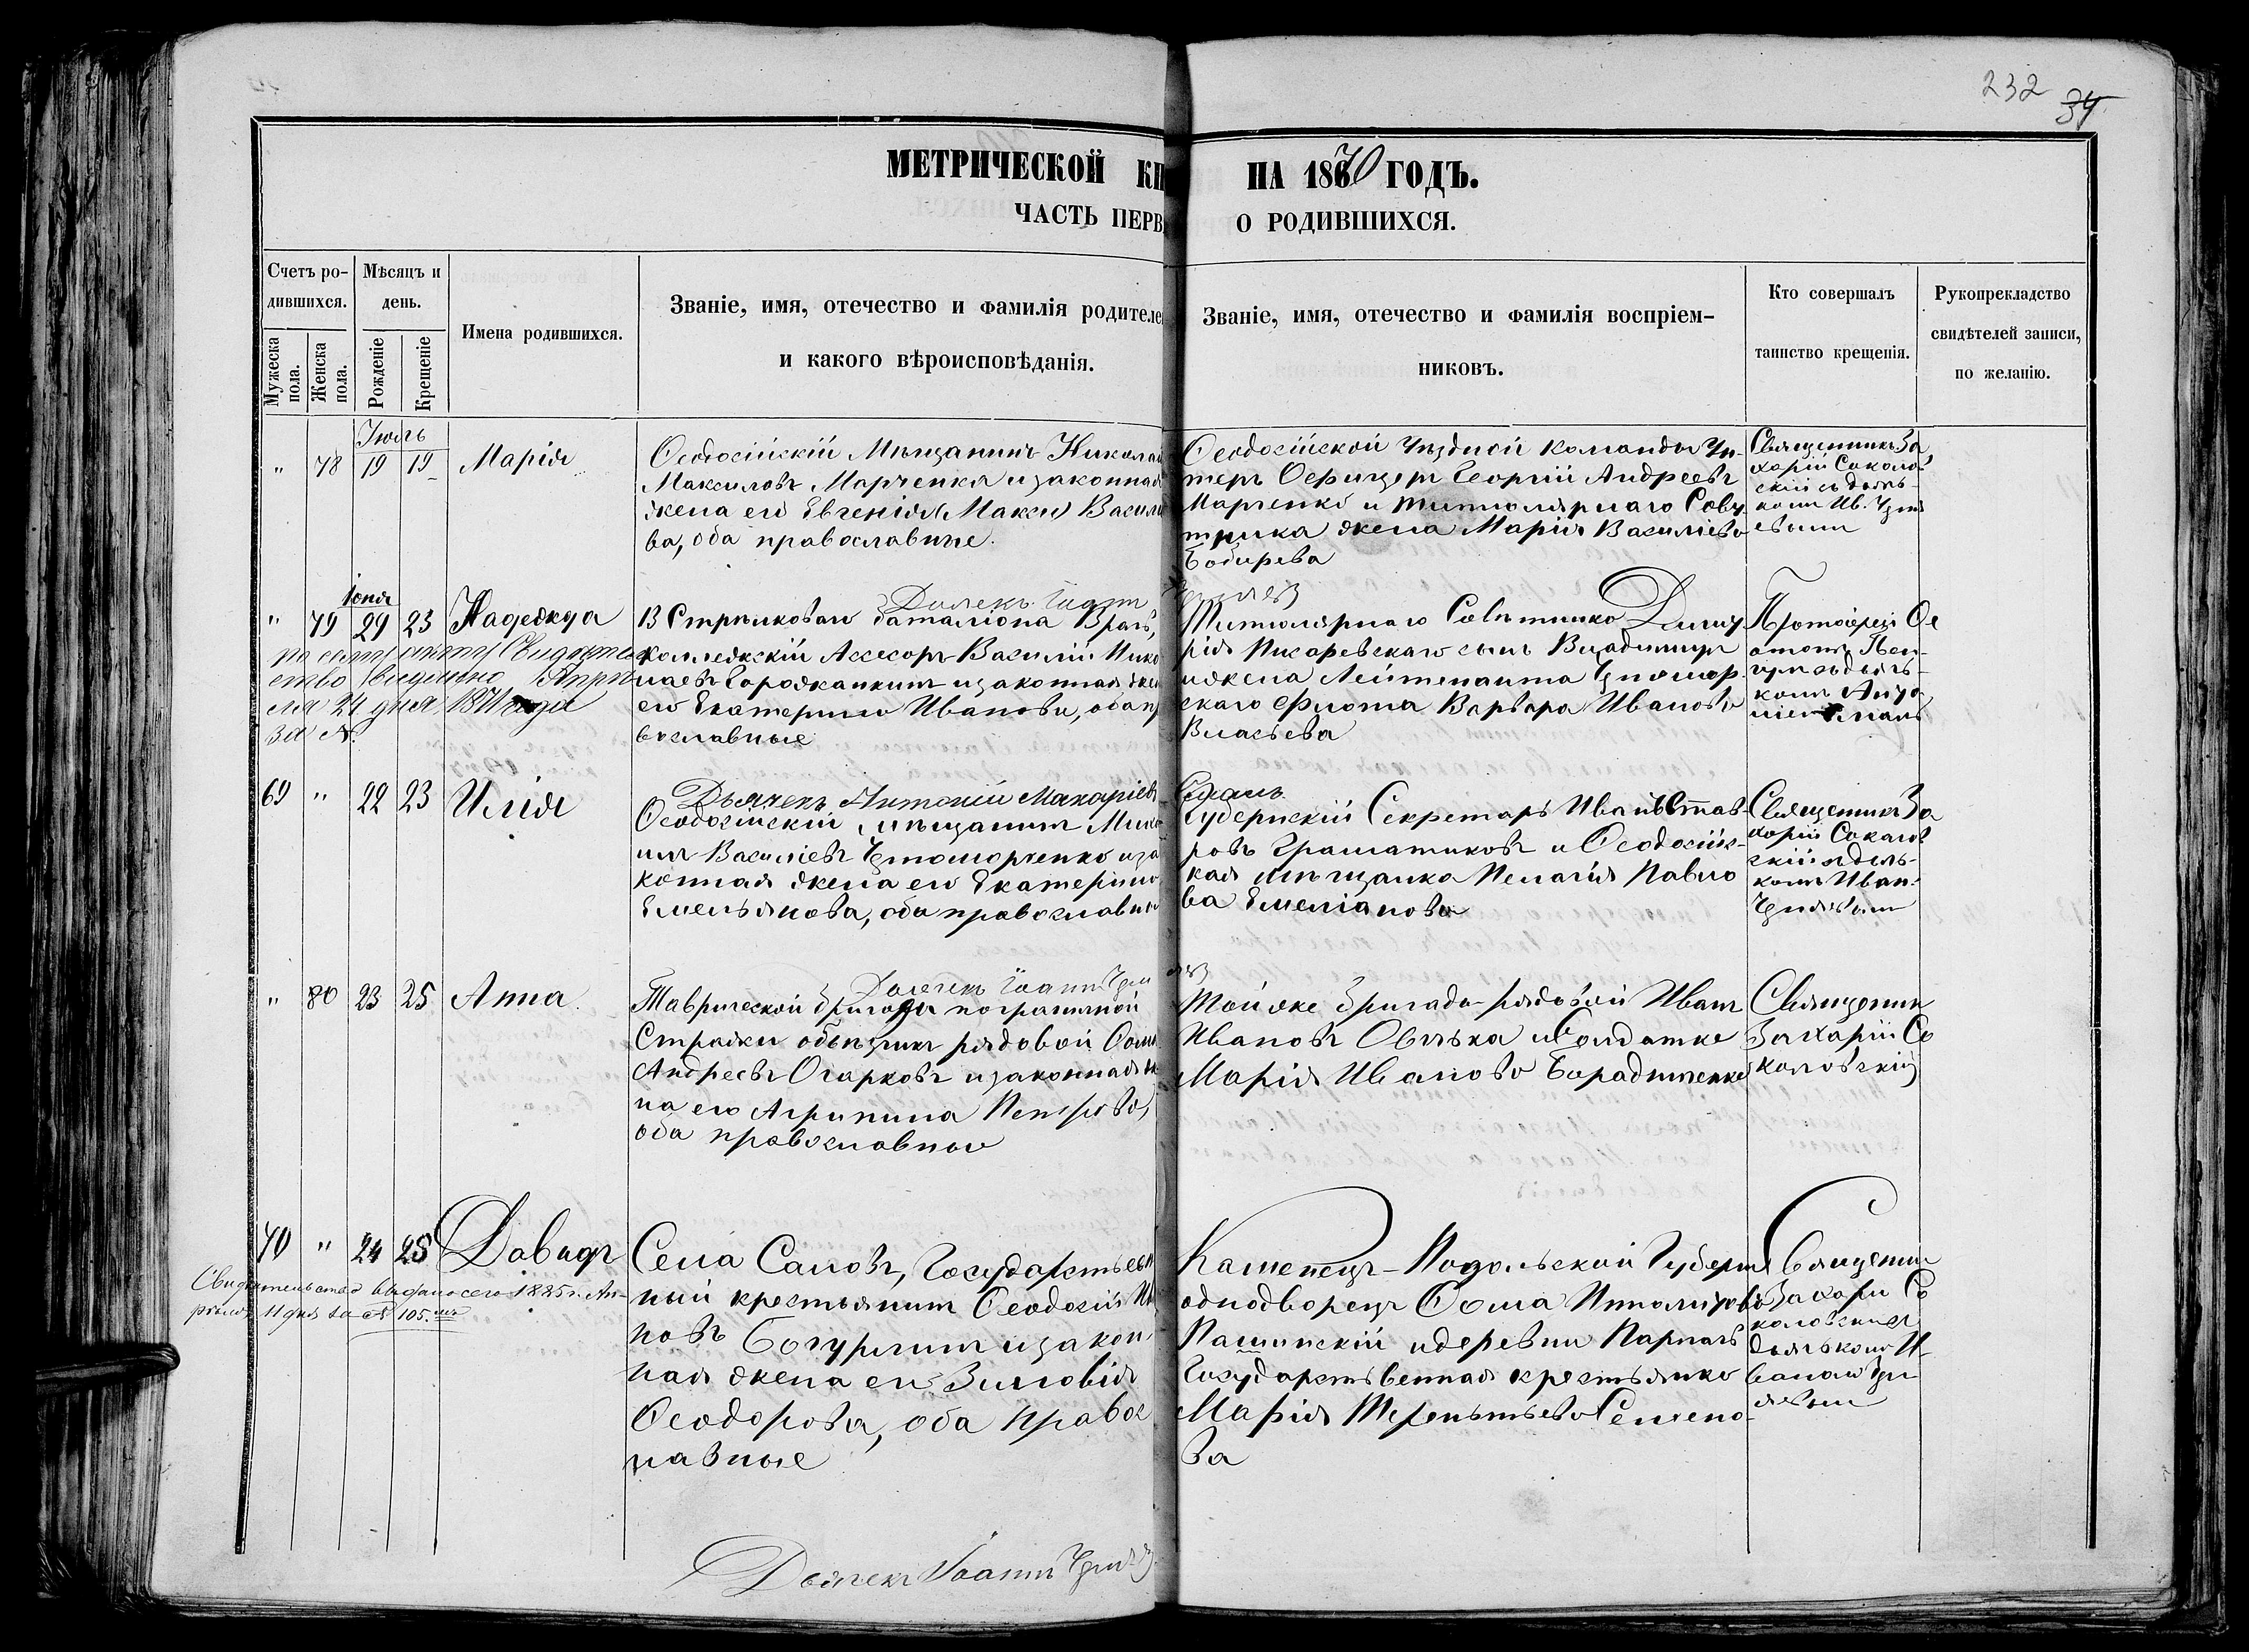 232 34
МЕТРИЧЕСКОЙ КН НА 1870 ГОДЪ.
ЧАСТЬ ПЕРВ О РОДИВШИХСЯ.
Счетъ ро-
дившихся.
Мужеска
пола.
Женска
пола.
Мѣсяцъ и
день.
Рожденіе
Крещеніе
Имена родившихся.
Званіе, имя, отечество и фамилія родителе
и какого вѣроисповѣданія.
Званіе, имя, отечество и фамилія воспріем-
никовъ.
Кто совершалъ
таинство крещенія.
Рукоприкладство
свидѣтелей записи,
по желанію.
Іюль
" 78 19 19 Марія
Ѳеодосійскій Мѣщанинъ Николай
Максимовъ Марченко и законная
жена его Евгенія Васил
ва, оба православные.
Ѳеодосійской Уѣздной Команды Ун-
теръ Офицеръ Георгій Андреевъ
Марченко и Титулярнаго Совѣ
тника жена Марія Василіева
Бобырева
Священникъ За
харій Соколов
скій съ дьяч-
комъ Ив.
Дьячекъ Іоаннъ
Іюня
" 79 29 23 Надежда
В Стрѣлковаго баталіона Врачъ,
Коллежскій Ассесоръ Василій Нико
лаевъ Горожанкинъ и законная жен
его Екатерина Иванова, оба пр
вославные
Титулярнаго Совѣтника Дмит
рія Писаревскаго сынъ Владимиръ
и жена Лейтенанта Черномор
скаго флота Варвара Иванова
Власьева
Протоіерей Ѳе
съ дьяч-
комъ Анто
ніемъ
Свидѣтель
ство выдано Апрѣ
ля 24 дня 1871 года
за №
Дьячекъ Антоній Макаріев
69 " 22 23 Илія
Ѳеодосійскій мѣщанинъ Миха
илъ Василіевъ Черноморченко и за
конная жена его Екатерина
Емельянова, оба православные
Губернскій Секретарь Иванъ Став-
ровъ Граматиковъ и Ѳеодосійс-
кая мѣщанка Пелагія Павло
ва Емеліанова
Священникъ За
харій Соколов
скій съ дьяч-
комъ Иван.
Дьячекъ Іоаннъ
" 80 23 25 Анна.
Таврической бригады пограничной
Стражи объѣщикъ рядовой Ѳома
Андреевъ Огарковъ и законная же
на его Агрипина Петрова,
оба православные
Той же бригады рядовой Иванъ
Ивановъ Овечка и Солдатка
Марія Иванова Бородиненко
Священникъ
Захарій Со
коловскій
70 " 24 25 Давидъ
Свидѣтельство выдано сего 1885 г. Ап-
рѣля 11 дня за № 105.
Села Салов, Государствен
ный крестьянинъ Ѳеодосій Ив
новъ и закон
ная жена его Зиновія
Ѳеодорова, оба правос
лавные
Каменецъ-Подольской Губерн
однодворецъ Ѳома Ипполитовъ
Пашинскій и деревни Парпачъ
Государственная крестьянка
Марія Терентьева Семено-
ва
Священни
Захарій Со
коловскій съ
дьячкомъ И-
ваномъ
Дьячекъ Іоаннъ